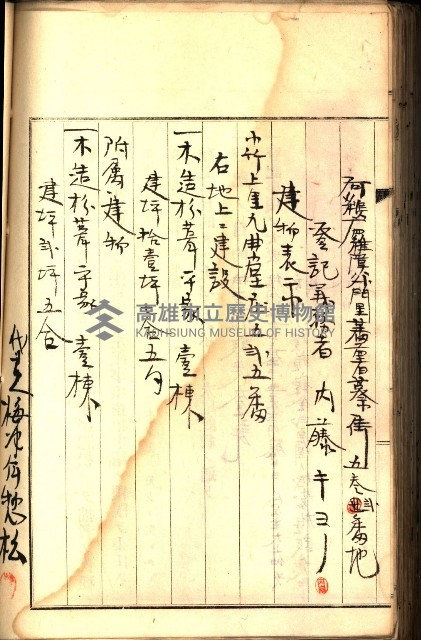 阿緱厅羅漢外門里蕃薯寮街五叁弍番地
登記義務者 内藤キヨノ
建物表示
小竹上里九曲堂五弍五番
右地上ニ建設
一木造杉葺平家 壹棟
建坪拾壹坪 合五勺
附属建物
一木造杉葺平家 壹棟
建坪弍坪五合
高雄市立歷史博物館
KAOHSIUNG MUSEUM OF HISTORY